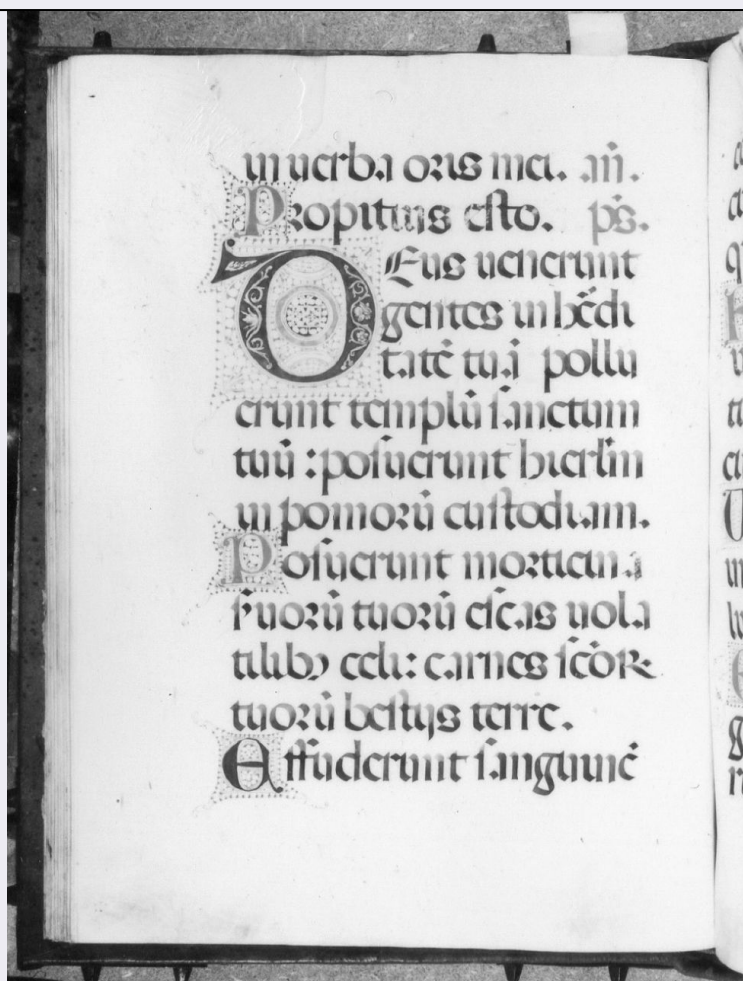 in uerba oris mei. añ.
Propitius esto. p̄s.
DEus uenerunt
gentes in hẽdi
tatẽ tuã pollu
erunt templũ sanctum
tuũ : posuerunt hierlm̃
in pomorũ custodiam.
Posuerunt morticina
s̃uorũ tuorũ escas uola
tilibꝫ celi: carnes scõꝝ
tuorũ bestijs terre.
Effuderunt sanguinẽ